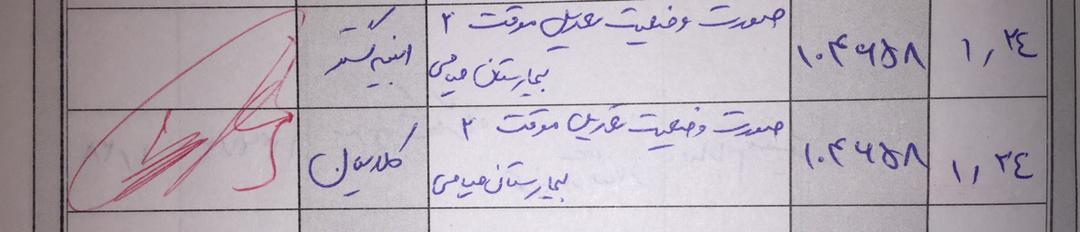 ۱,۲۴
۱۰۴۶۵۸
صورت وضعیت تعدیل موقت ۲
بیمارستان میامی
ابنیه گستر
۱,۲۴
۱۰۴۶۵۸
صورت وضعیت تعدیل موقت ۳
بیمارستان میامی